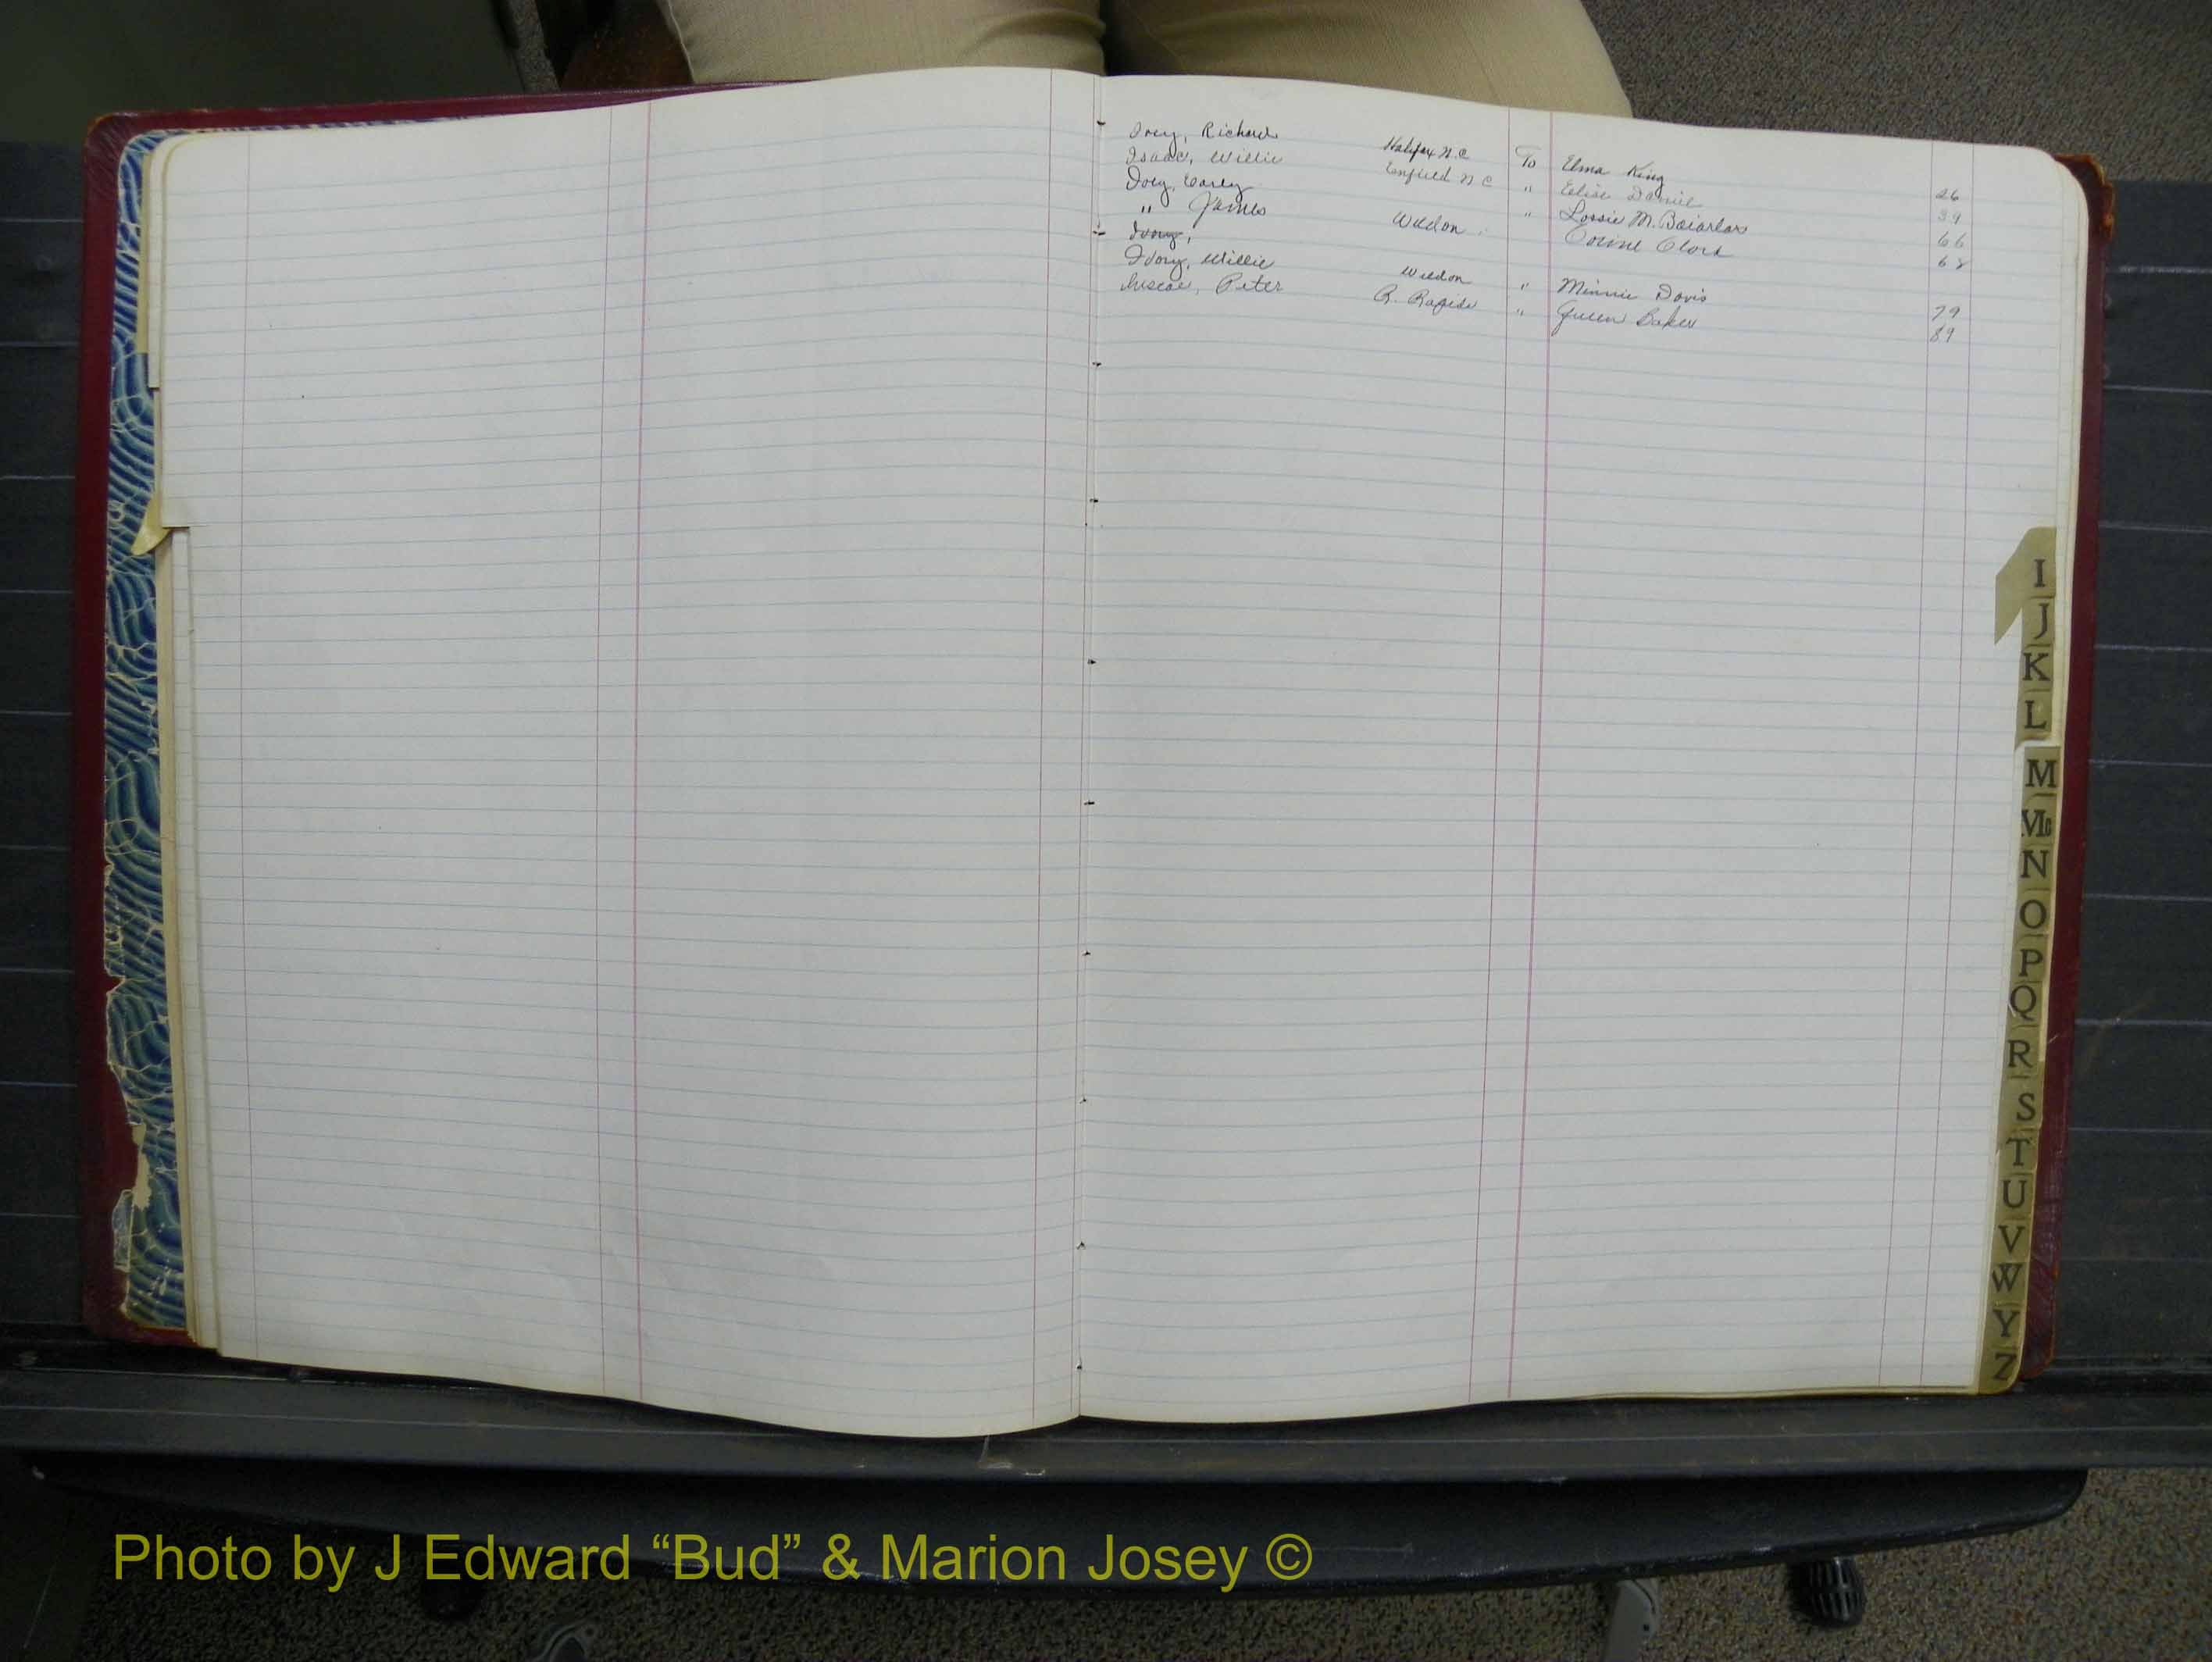 Ivey, Richard Halifax N.C To Elma King 26
Isaac, Willie Enfield N C " Elise Daniel 39
Ivey, Early " Lossie M. 66
" James Weldon Corine Clark 68
Ivory,
Ivory, Willie Weldon " Minnie Davis 79
Peter R. Rapids " Queen Baker 89
I
J
K
L
M
Mc
N
O
P
Q
R
S
T
U
V
W
Y
Z
Photo by J Edward “Bud” & Marion Josey ©